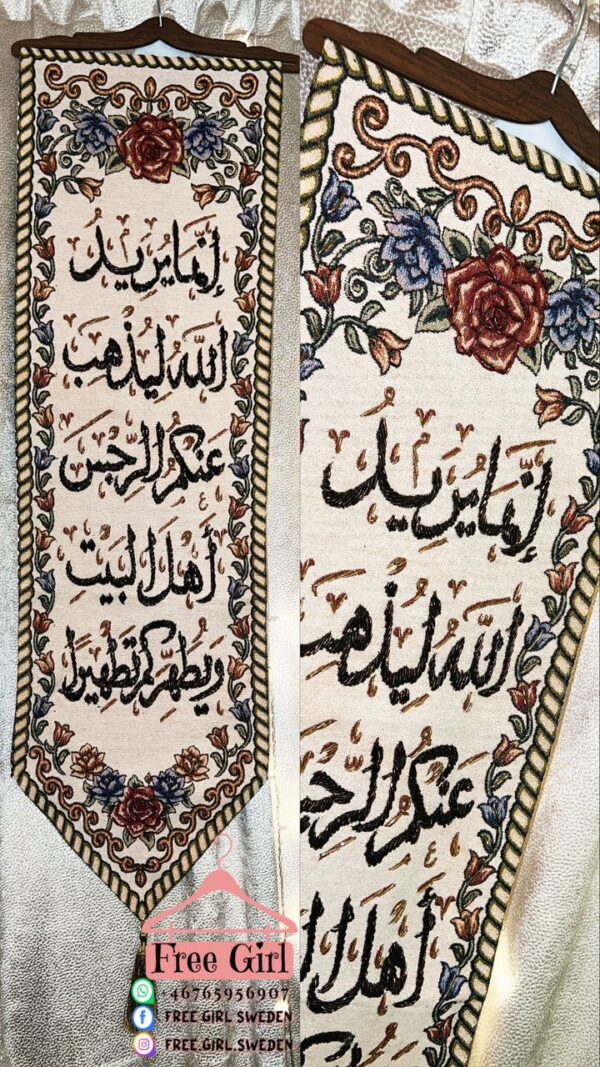 إِنَّمَا يُرِيدُ
اللَّهُ لِيُذْهِبَ
عَنكُمُ الرِّجْسَ
أَهْلَ الْبَيْتِ
وَيُطَهِّرَكُمْ تَطْهِيرًا
إِنَّمَا يُرِيدُ
اللَّهُ لِيُذْهِبَ
عَنكُمُ الرِّجْ
أَهْلَ ا
Free Girl
+46765956907
FREE.GIRL.SWEDEN
FREE.GIRL.SWEDEN